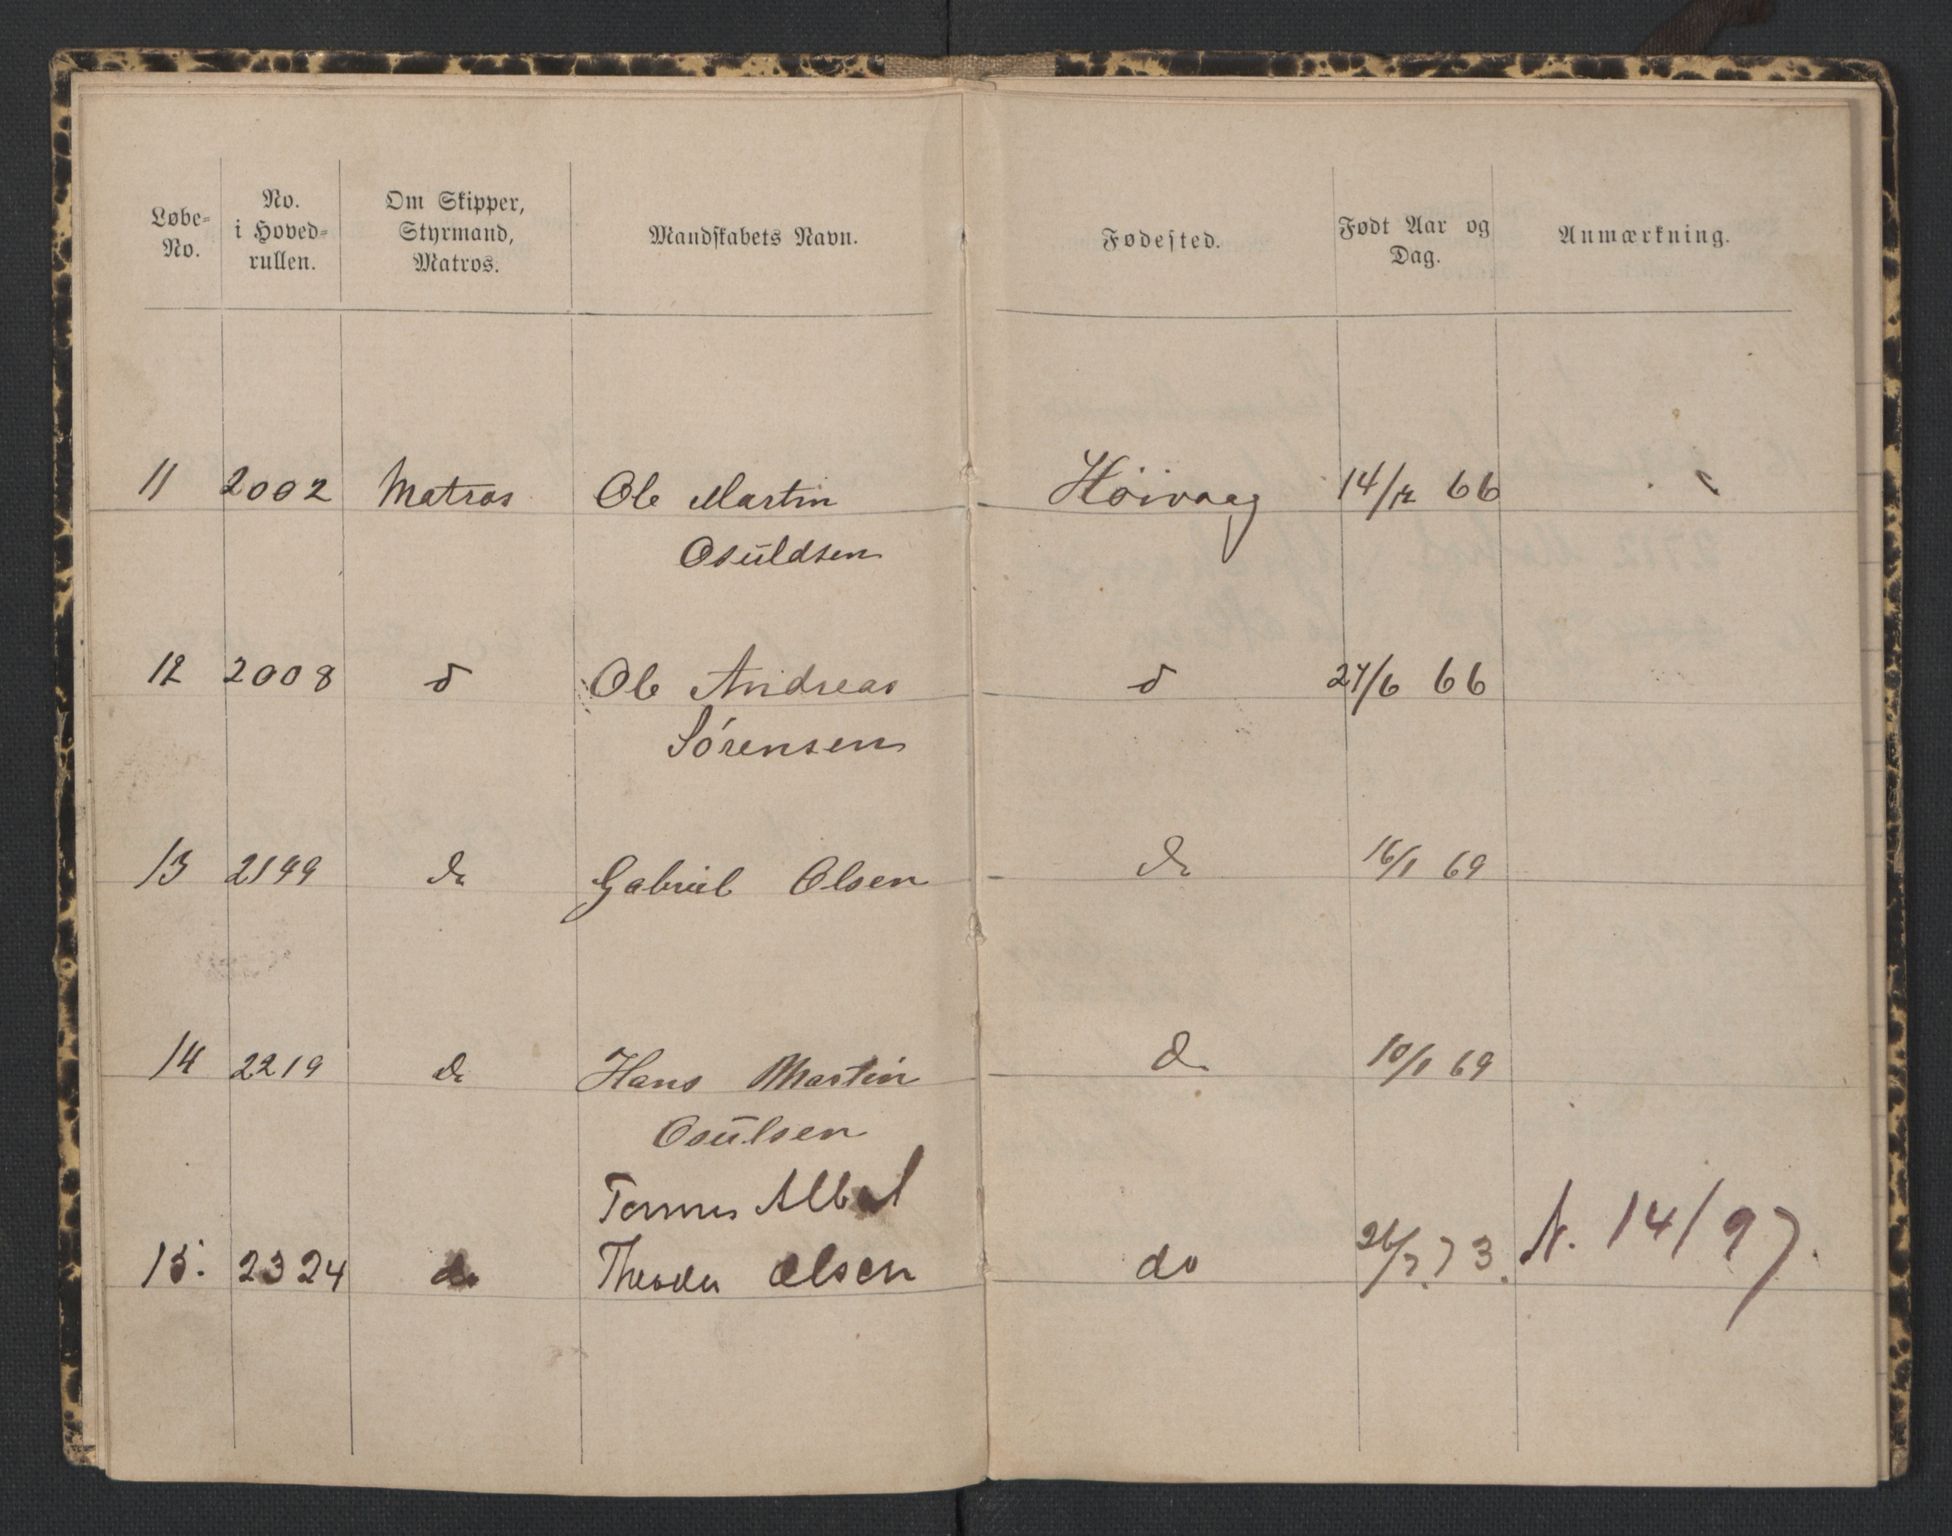 Løbe-No. No. i Hoved-rullen. Om Skipper, Styrmand, Matros. Mandskabets Navn. Fødested. Født Aar og Dag. Anmærkning.
11 2002 Matros Ole Martin Høivaag 14/12 66
Osuldsen
12 2008 do Ole Andreas do 27/6 66
Sørensen
13 2199 do Gabriel Olsen do 16/1 69
14 2219 do Hans Martin do 10/1 69
Osulsen
Albert
15. 2324 do Theodor Olsen do 26/7. 73. N. 14/97.